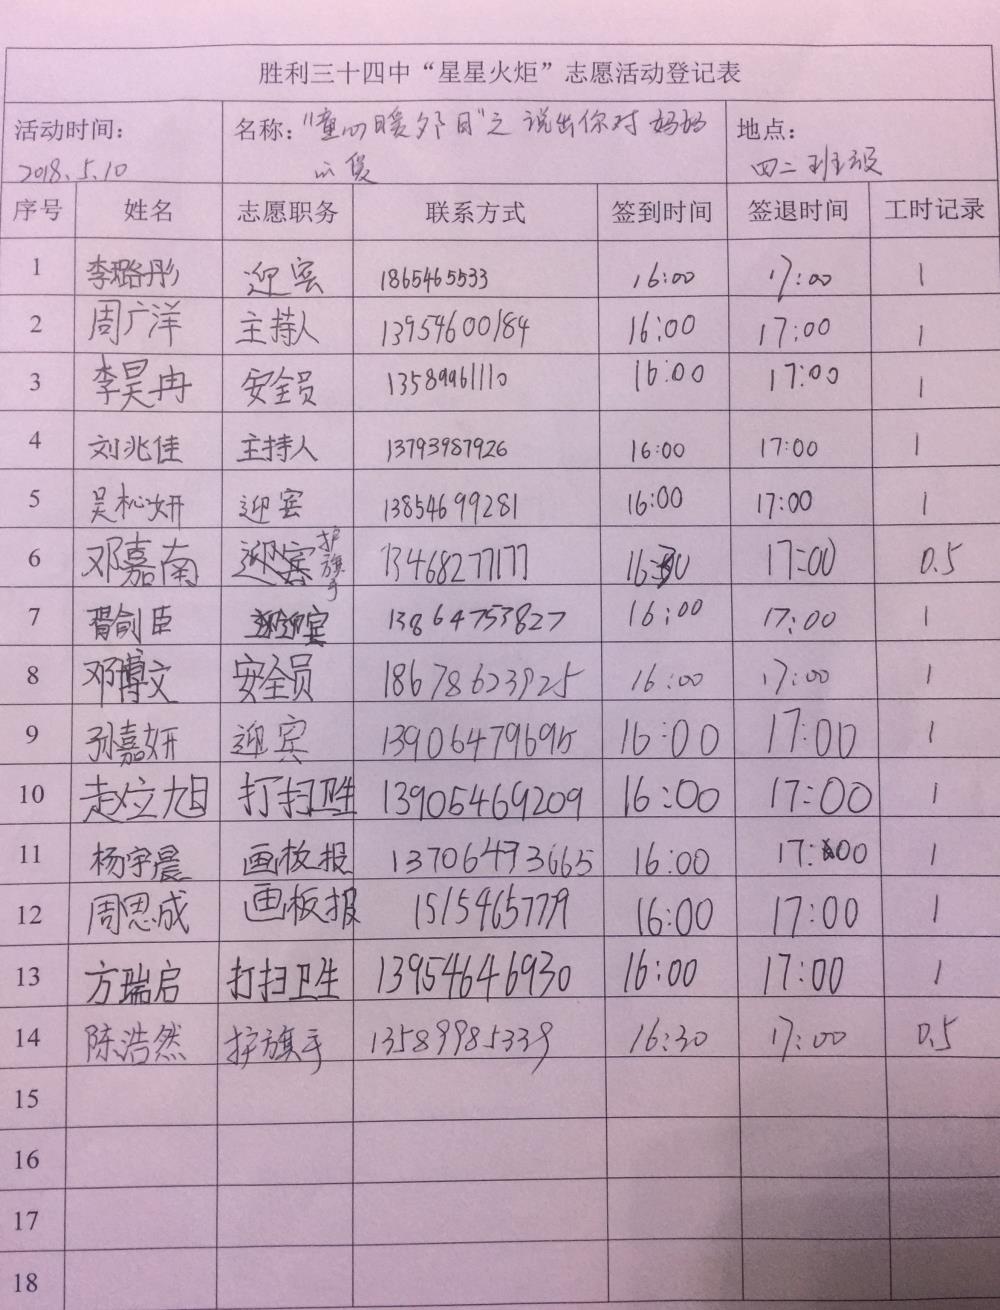 胜利三十四中“星星火炬”志愿活动登记表
活动时间: 名称:"童心暖夕阳"之说出你对妈妈 地点:
2018.5.10 的爱 四二班级
序号 姓名 志愿职务 联系方式 签到时间 签退时间 工时记录
1 李璐彤 迎宾 1865465533 16:00 17:00 1
2 周广洋 主持人 13954600184 16:00 17:00 1
3 李昊冉 安全员 13589961110 16:00 17:00 1
4 刘兆佳 主持人 13793987926 16:00 17:00 1
5 吴松妍 迎宾 13854699281 16:00 17:00 1
6 邓嘉南 迎宾护旗手 13468277177 16:30 17:00 0.5
7 胥剑臣 迎宾 13864753827 16:00 17:00 1
8 邓博文 安全员 18678623925 16:00 17:00 1
9 孙嘉妍 迎宾 16:00 17:00 1
10 赵立旭 打扫卫生 13905469209 16:00 17:00 1
11 杨宇晨 画板报 13706473665 16:00 17:00 1
12 周思成 画板报 1515465779 16:00 17:00 1
13 方瑞启 打扫卫生 13954646930 16:00 17:00 1
14 陈浩然 护旗手 13589985339 16:30 17:00 0.5
15
16
17
18